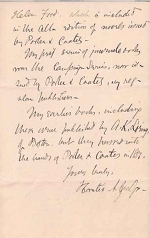 Helen Ford, which is included
in the Alta edition of novels issued
by Porter & Coates.
My first series of juvenile books
was the Campaign Series, now is-
sued by Porter & Coates, my reg-
ular publishers.
My earlier books, including
these were published by A.K. Loring
of Boston, but they passed into
the hands of Porter & Coates in
Yours truly,
Horatio Alger Jr.